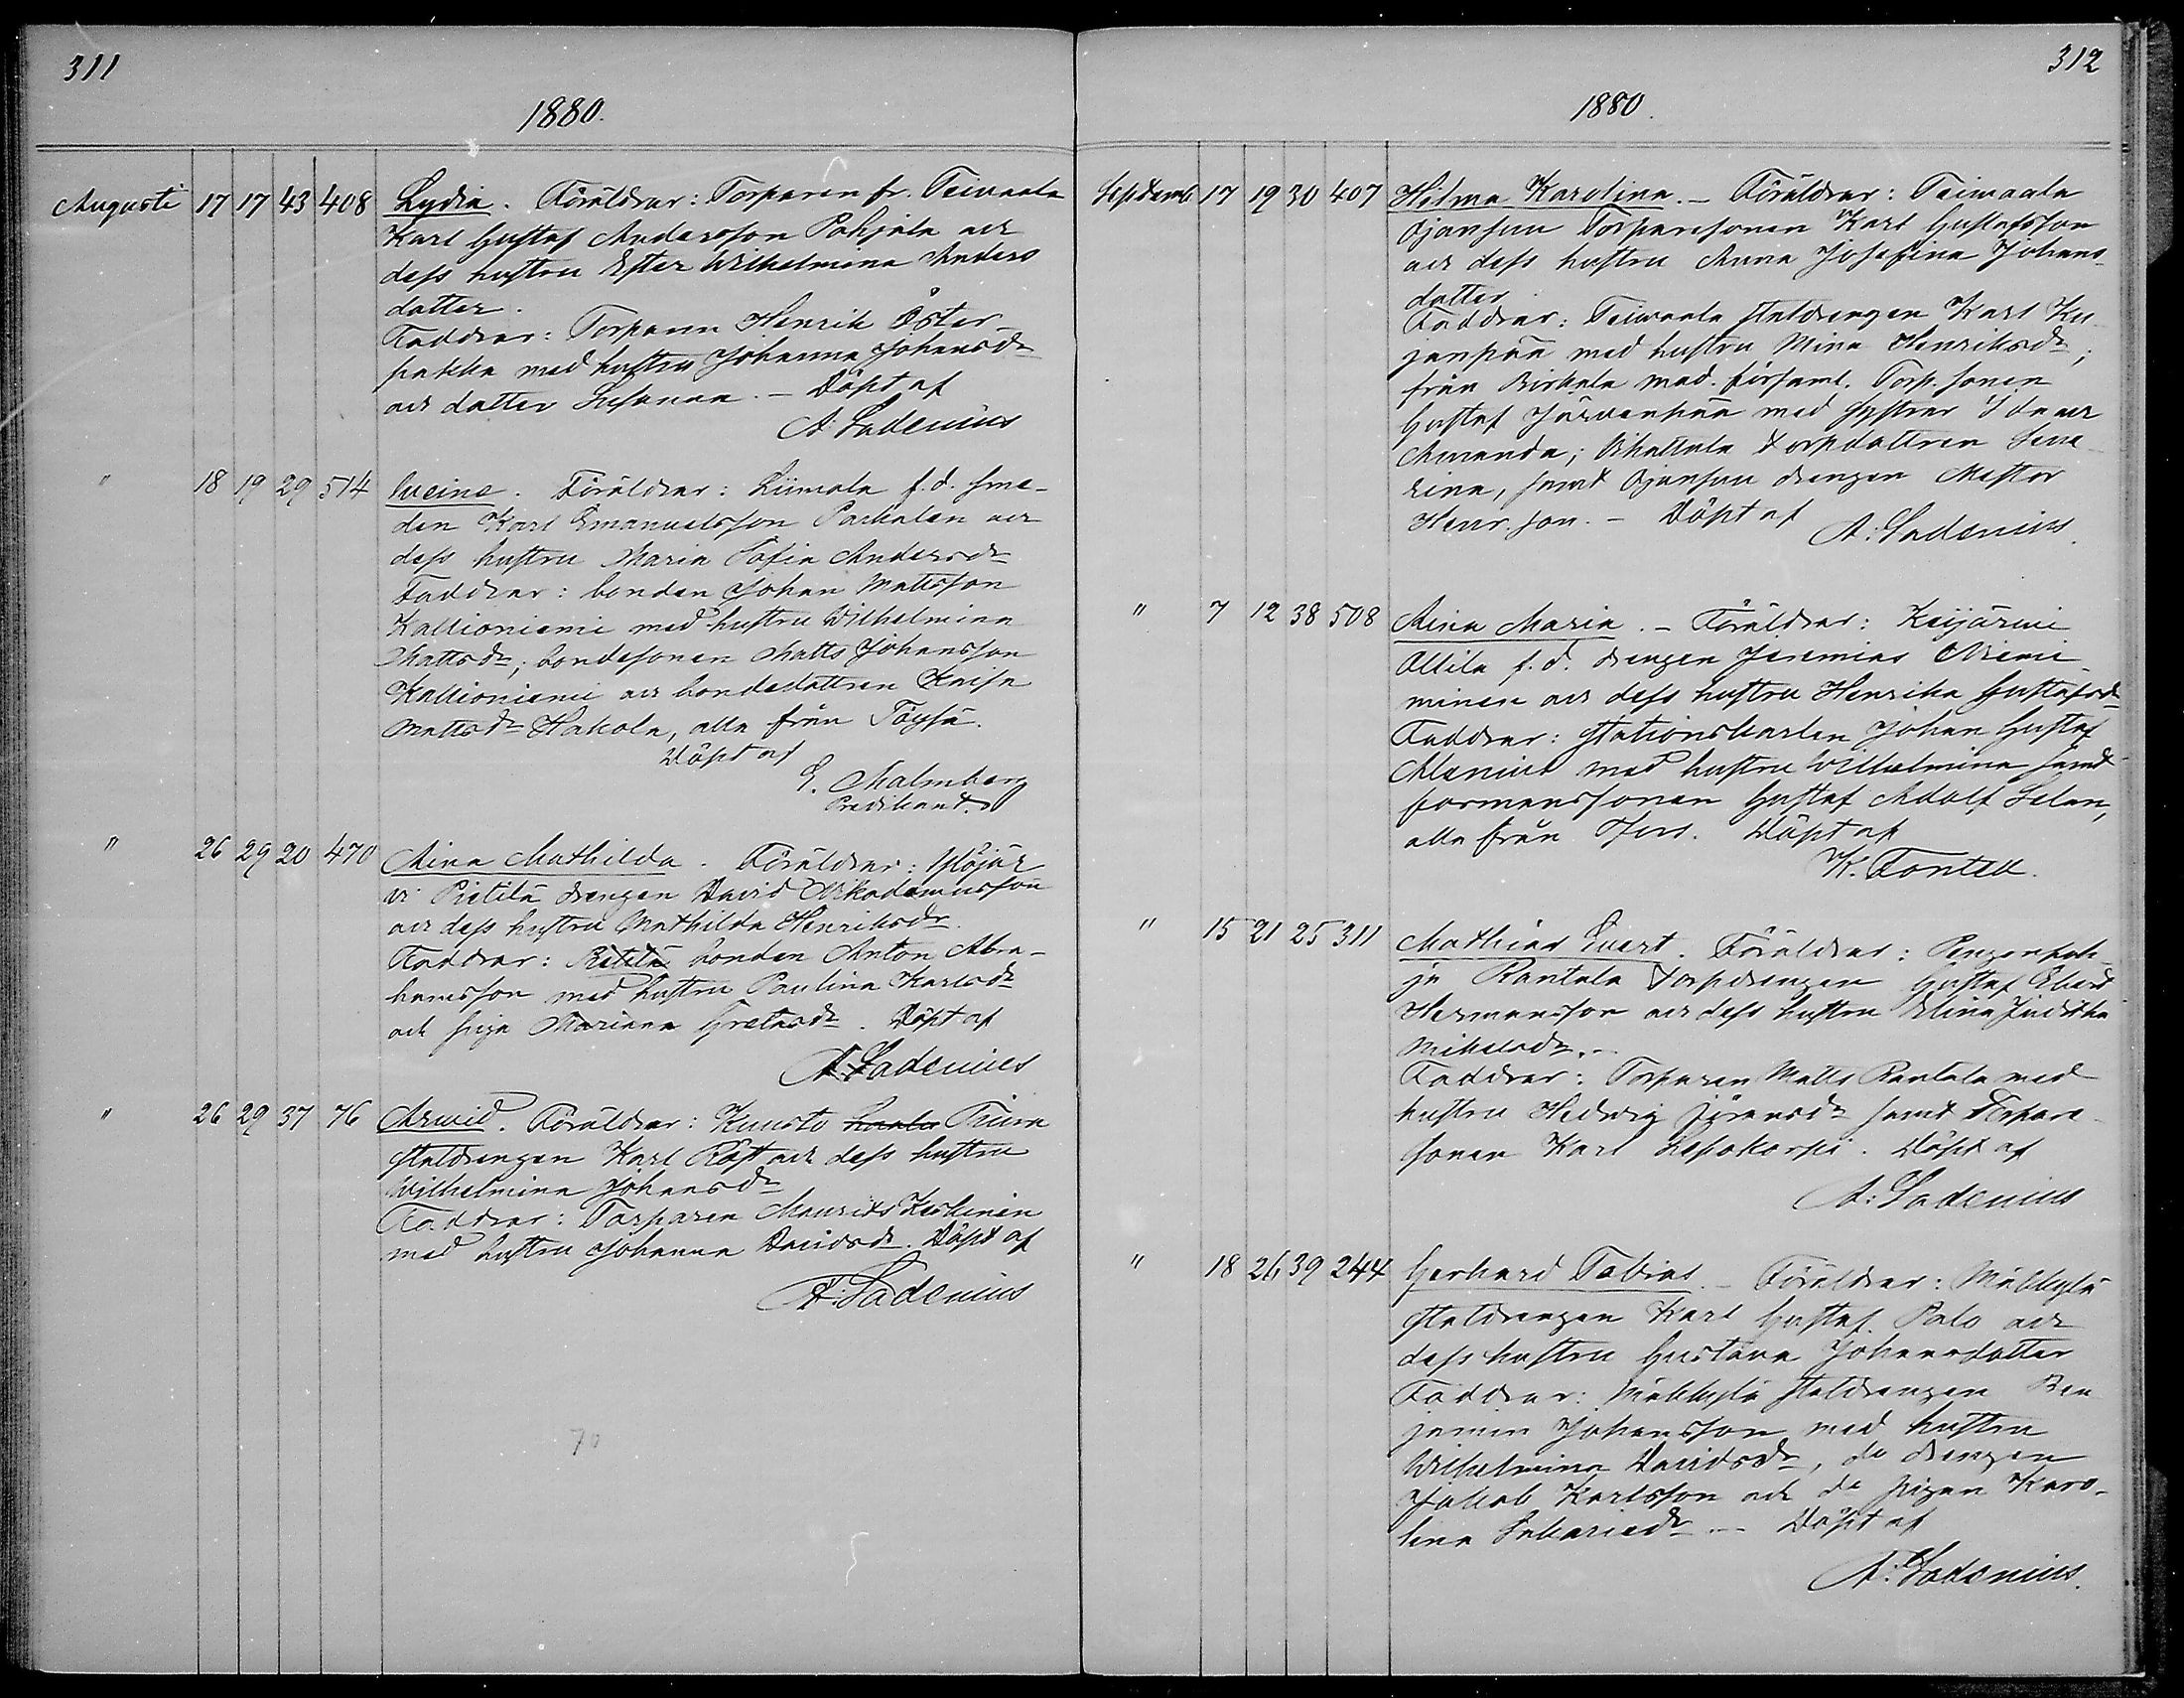 311
1880.
Augusti 17 17 43 408 Lydia. Föräldrar: Torparen fr. Teivaala
Karl Gustaf Andersson Pohjala och
dess hustru Ester Wilhelmina Anders
dotter.
Faddrar: Torparen Henrik Öster-
pakka med hustru Johanna Johansdr
och dotter Susanna. – Döpt af
A. Ladenius
" 18 19 29 514 Weine. Föräldrar: Liimola f.d. sme-
den Karl Emanuelsson Parkalen och
dess hustru Maria Sofia Andersdr
Faddrar: bonden Johan Mattsson
Kallioniemi med hustru Wilhelmina
Mattsdr; bondesonen Matts Johansson
Kallioniemi och bondedottren Kaisa
Mattsdr Hakola, alla från Töysä.
Döpt af
E. Malmberg
Predikant
" 26 29 20 470 Aina Mathilda. Föräldrar: Ylöjär
vi Pietilä drengen David Nikodemusson
och dess hustru Mathilda Henriksdr.
Faddrar: Pietilä bonden Anton Abra-
hamsson med hustru Paulina Karlsdr
och piga Mariana Gretasdr. Döpt af
A. Ladenius
" 26 29 37 76 Arwid. Föräldrar: Kuusto Triuva
statdrengen Karl Rost och dess hustru
Wilhelmina Johansdr
Faddrar: Torparen Maurits Keskinen
med hustru Johanna Davidsdr. Döpt af
A. Ladenius
70
312
1880.
Septemb. 17 19 30 407 Hilma Karolina. – Föräldrar: Teivaala
Ojansuu Torparesonen Karl Gustafsson
och dess hustru Anna Josefina Johans-
dotter
Faddrar: Teivaala statdrengen Karl Ku-
janpää med hustru Mina Henriksdr;
från Birkala mod. församl. Torp. sonen
Gustaf Järvenpää med systrar Ida och
Amanda; torpdottren Seve-
rina, samt Ojansuu drengen Nestor
Henr. son. – Döpt af
A. Ladenius.
" 7 12 38 508 Aina Maria. – Föräldrar: Keijärvi
Ollila f.d. drengen Jeremias Niemi-
minen och dess hustru Henrika Gustafsdr
Faddrar: Stationskarlen Johan Gustaf
Alenius med hustru Wilhelmina samt
formanssonen Gustaf Adolf Selen,
alla från Döpt af
K. Fontell.
" 15 21 25 311 Mathias Evert. Föräldrar: Pengonpoh-
ja Rantala torpdrengen Gustaf Eberd
Hermansson och dess hustru Elina Juditha
Mikelsdr. –
Faddrar: Torparen Matts Rantala med
hustru Hedvig Göransdr samt Torpare-
sonen Karl Lepokorpi. Döpt af
A. Ladenius
" 18 26 39 244 Gerhard Tobias. – Föräldrar: Mälkylä
statdrengen Karl Gustaf Palo och
dess hustru Gustava Johansdotter
Faddrar: Mälkylä statdrengen Ben
jamin Johansson med hustru
Wilhelmina Davidsdr, do drengen
Jakob Karlsson och do pigan Karo-
lina Sakariedr. – Döpt af
A. Ladenius.